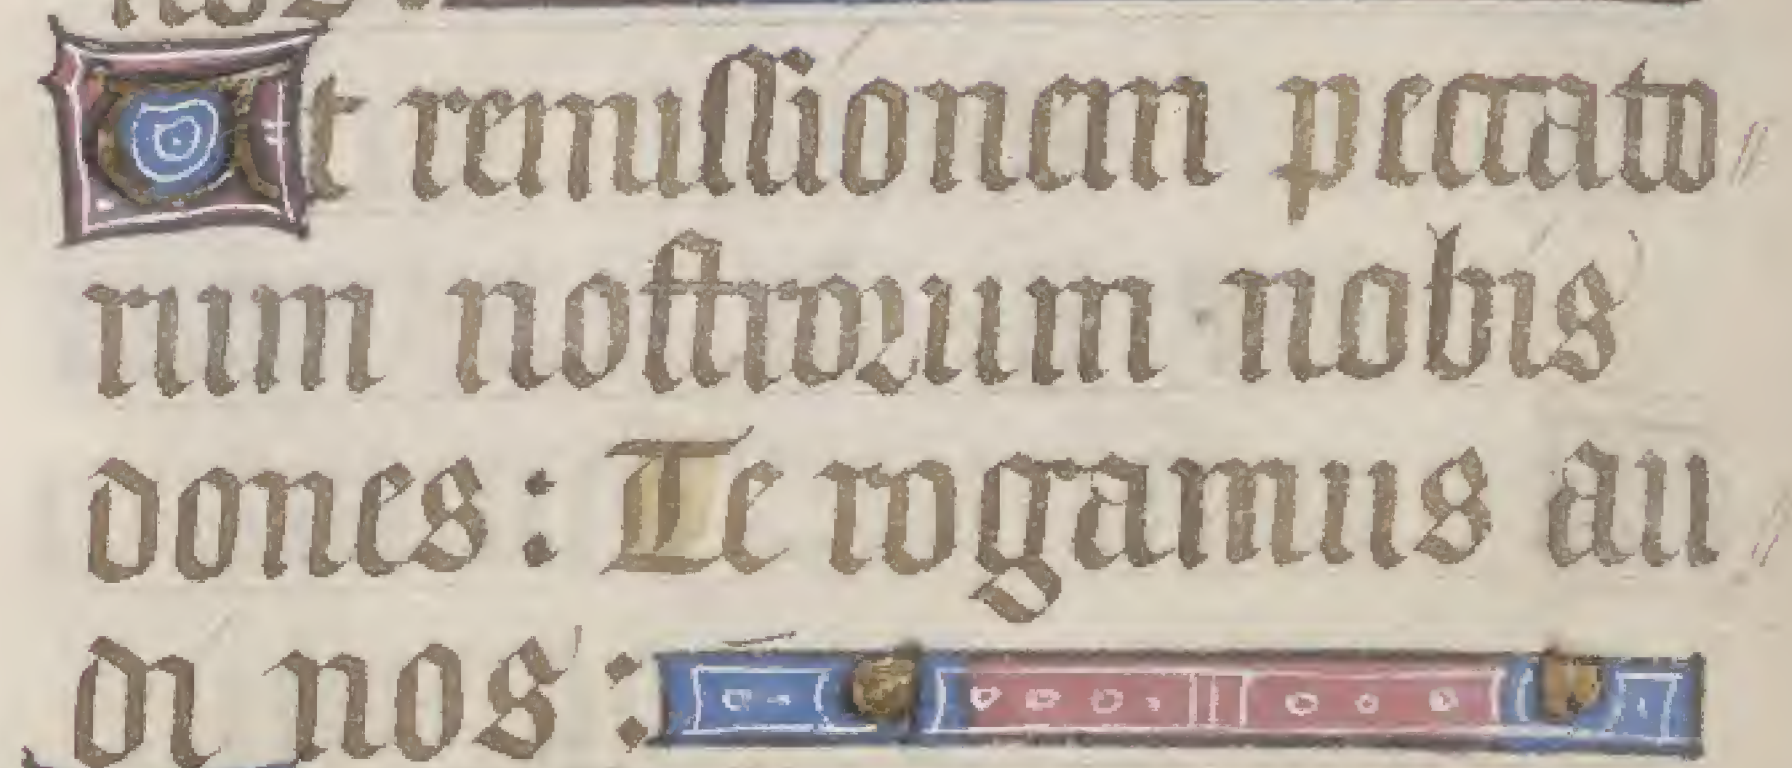 nos:
Ut remissionem peccato
rum nostrorum nobis
dones: Te rogamus au
di nos: